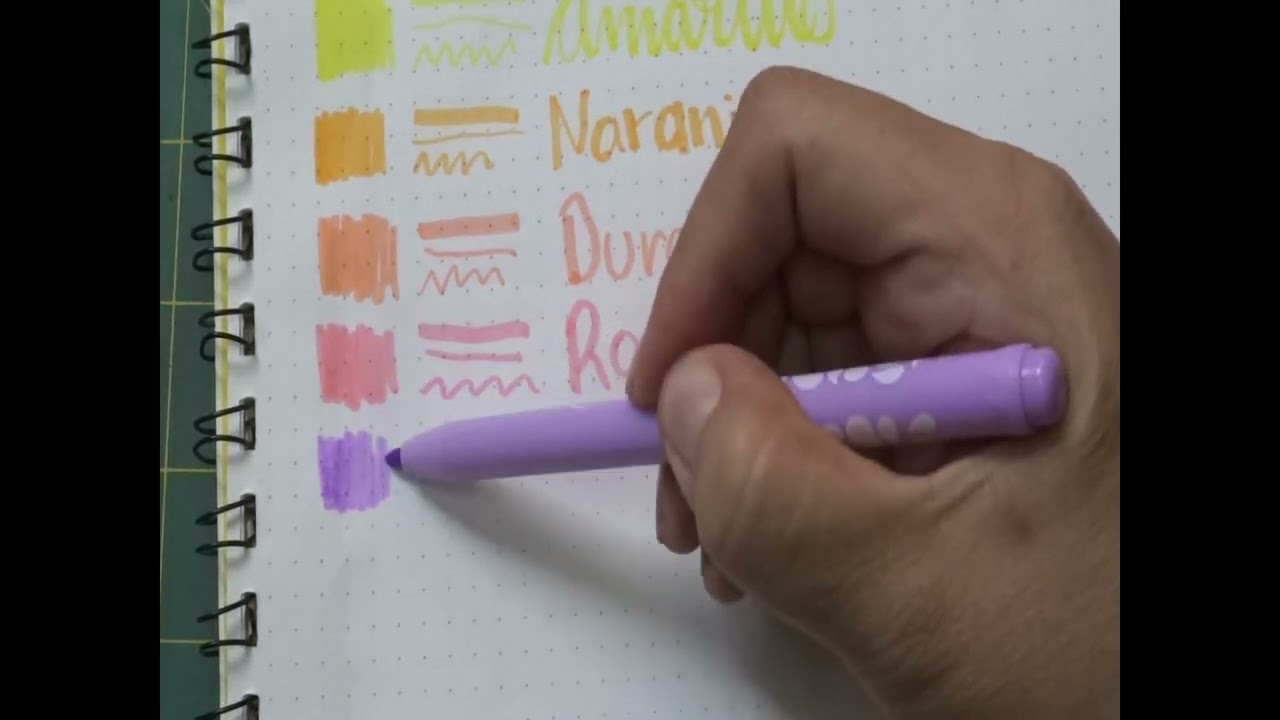 Amarillo
Naranj
Dura
Ro